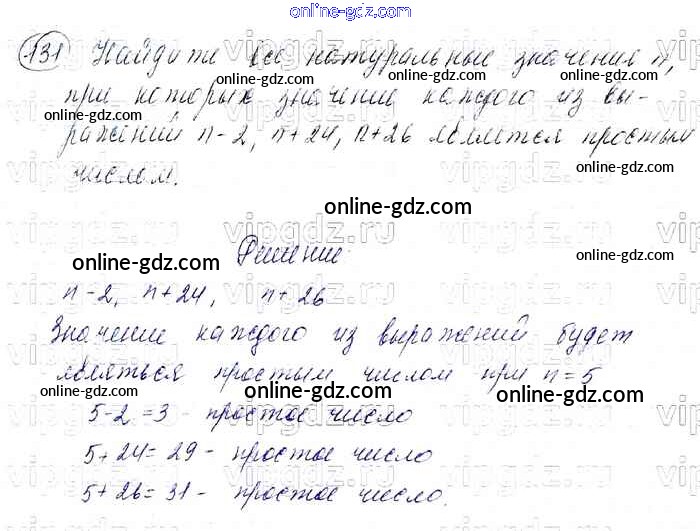 online-gdz.com
131 Найдите все натуральные значения n,
online-gdz.com online-gdz.com
при которых значение каждого из вы-
online-gdz.com
ражений n-2, n+24, n+26 является простым
online-gdz.com
числом.
online-gdz.com
Решение:
online-gdz.com
n-2, n+24, n+26
Значение каждого из выражений будет
online-gdz.com
являться простым числом при n=5
online-gdz.com online-gdz.com
5-2=3 - простое число
online-gdz.com
5+24=29 - простое число
5+26=31 - простое число.
online-gdz.com